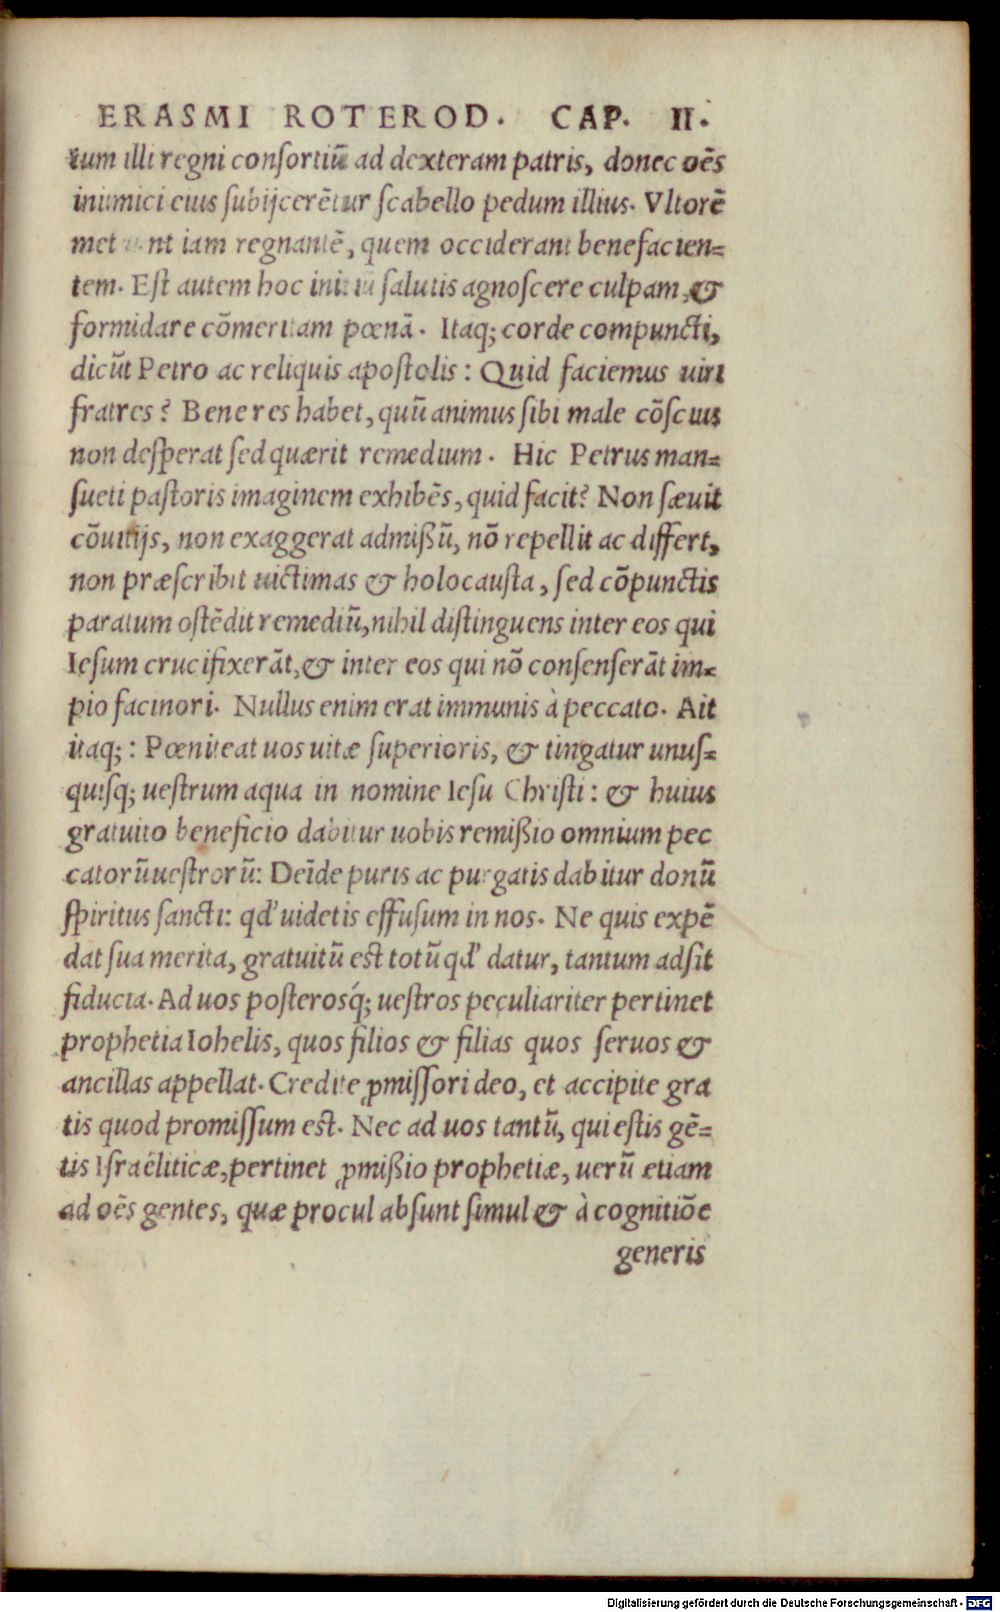 ERASMI ROTEROD. CAP. II.
tum illi regni conſortiũ ad dexteram patris, donec oẽs
inimici eius ſubijcerẽtur ſcabello pedum illius. Vltorẽ
metuunt iam regnantẽ, quem occiderant benefacien=
tem. Eſt autem hoc initiũ ſalutis agnoſcere culpam, &
formidare cõmeritam pœnã. Itaq; corde compuncti,
dicũt Petro ac reliquis apoſtolis: Quid faciemus uiri
fratres? Bene res habet, quũ animus ſibi male cõſcius
non deſperat ſed quærit remedium. Hic Petrus man=
ſueti paſtoris imaginem exhibẽs, quid facit? Non ſæuit
cõuitijs, non exaggerat admißũ, nõ repellit ac differt,
non præſcribit uictimas & holocauſta, ſed cõpunctis
paratum oſtẽdit remediũ, nihil diſtinguens inter eos qui
Ieſum crucifixerãt, & inter eos qui nõ conſenſerãt im=
pio facinori. Nullus enim erat immunis à peccato. Ait
itaq;: Pœniteat uos uitæ ſuperioris, & tingatur unuſ=
quiſq; ueſtrum aqua in nomine Ieſu Chriſti: & huius
gratuito beneficio dabitur uobis remißio omnium pec
catorũ ueſtrorũ: Deĩde puris ac purgatis dabitur donũ
ſpiritus ſancti: qd' uidetis effuſum in nos. Ne quis expẽ
dat ſua merita, gratuitũ eſt totũ qd' datur, tantum adſit
fiducia. Ad uos poſterosq́; ueſtros peculiariter pertinet
prophetia Iohelis, quos filios & filias quos ſeruos &
ancillas appellat. Credite ꝓmiſſori deo, et accipite gra
tis quod promiſſum eſt. Nec ad uos tantũ, qui eſtis gẽ=
tis Iſraëliticæ, pertinet ꝓmißio prophetiæ, uerũ etiam
ad oẽs gentes, quæ procul abſunt ſimul & à cognitiõe
generis
Digitalisierung gefördert durch die Deutsche Forschungsgemeinschaft - DFG